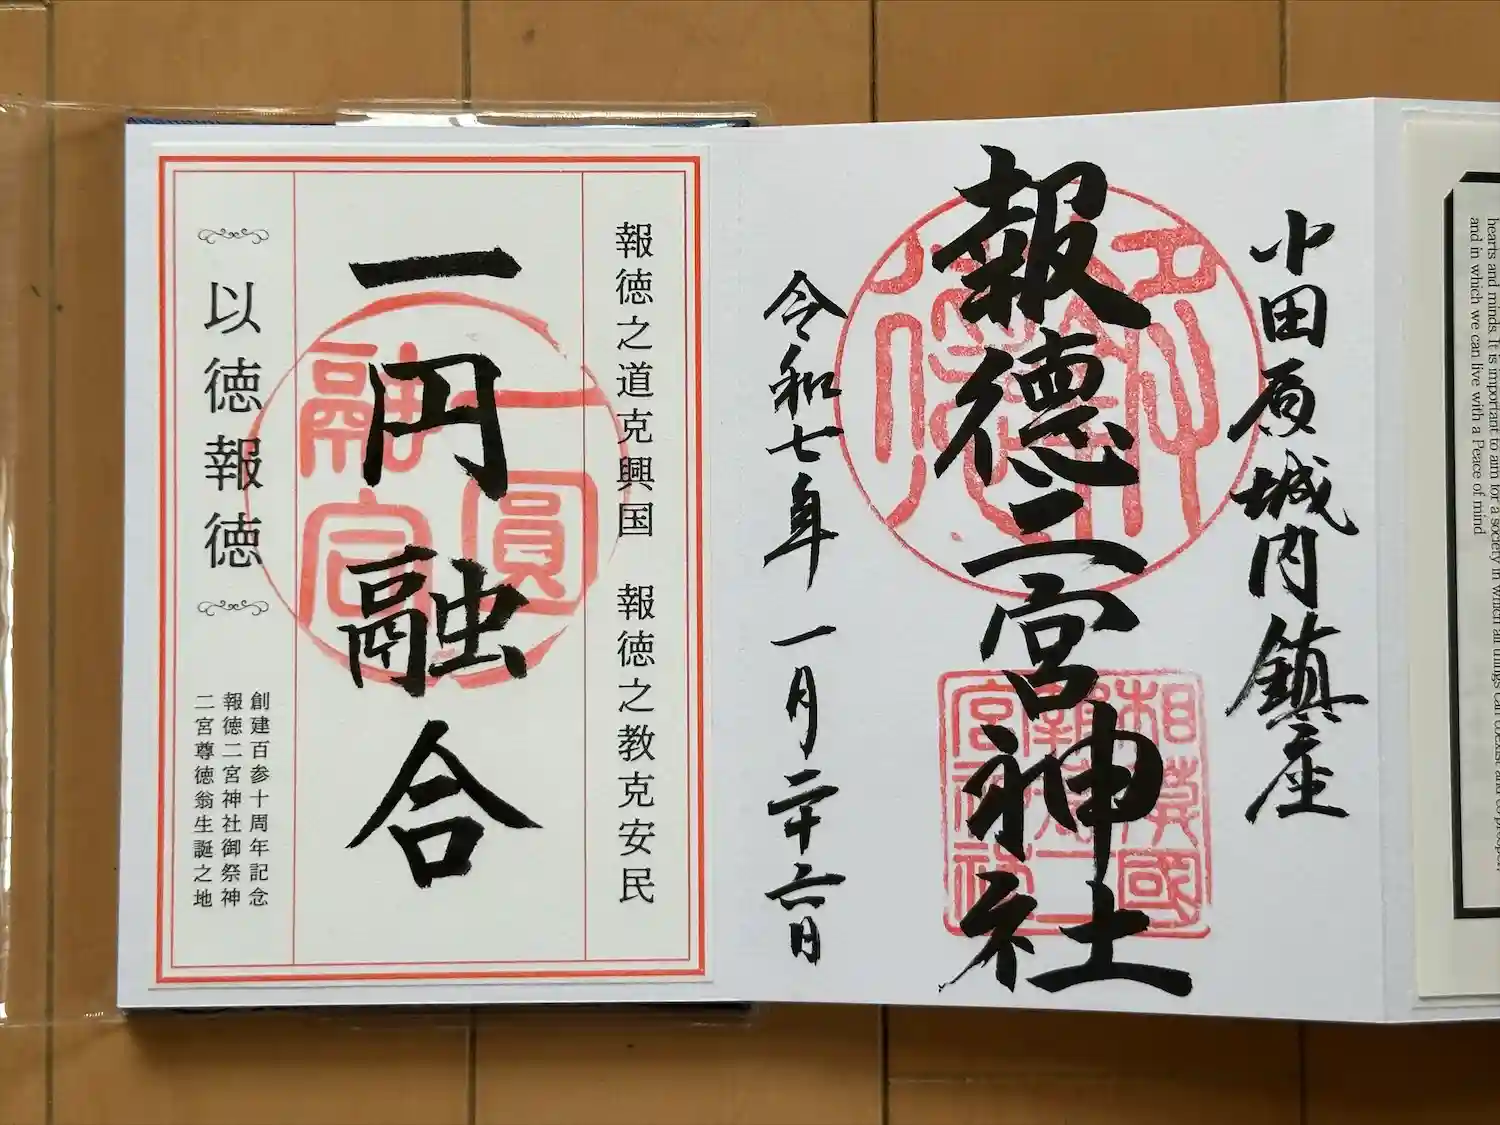 hearts and minds. It is important to aim for a society in which all things can coexist and co-prosper,
and in which we can live with a Peace of mind
小田原城内鎮座
報徳二宮神社
令和七年 一月二十六日
相模國
報徳二
宮神社
報徳之道克興国 報徳之教克安民
一円融合
一圓
融合
以徳報徳
創建百参十周年記念
報徳二宮神社御祭神
二宮尊徳翁生誕之地